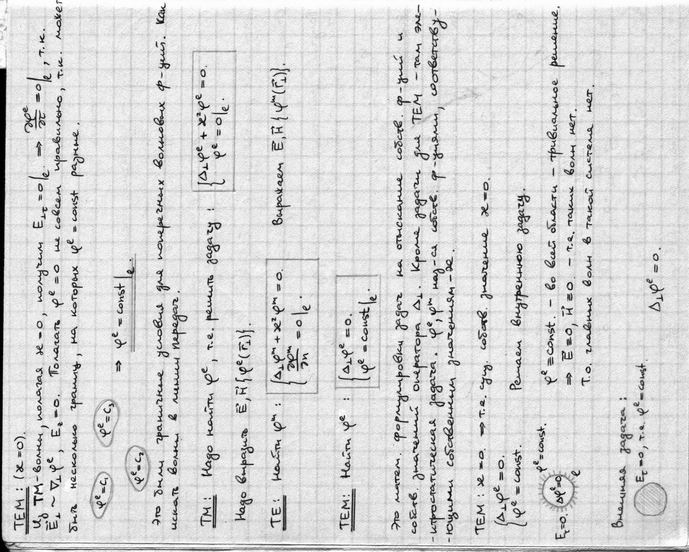 TEM: (ϰ=0).
Из TM-волны, полагая ϰ=0, получим E⊥τ=0|ₑ ⇒ ∂φᵉ/∂τ=0|ₑ, т.к.
E⃗⊥ ~ ∇⊥φᵉ, E_z=0. Полагать φᵉ=0 не совсем правильно, т.к. может
быть несколько границ, на которых φᵉ=const разные.
φᵉ=C₁ φᵉ=C₂ φᵉ=C₃ ⇒ φᵉ=const|ₑ.
Это были граничные условия для поперечных волновых ф-ций. Как
искать волны в линии передач.
TM: Надо найти φᵉ, т.е. решить задачу: { Δ⊥φᵉ+ϰ²φᵉ=0. φᵉ=0|ₑ.
Надо выразить E⃗,H⃗{φᵉ(r⃗⊥)}.
TE: Найти φᵐ: { Δ⊥φᵐ+ϰ²φᵐ=0. ∂φᵐ/∂n=0|ₑ. Выражаем E⃗,H⃗{φᵐ(r⃗⊥)}.
TEM: Найти φᵉ: { Δ⊥φᵉ=0. φᵉ=const|ₑ.
Это матем. формулировки задач на отыскание собств. ф-ций и
собств. значений оператора Δ⊥. Кроме задачи для TEM – там эле-
ктростатическая задача. φᵉ,φᵐ наз-ся собств. ф-циями, соответству-
ющими собственным значениям ϰ.
TEM: ϰ=0. ⇒ т.е. сущ. собств. значение ϰ=0.
{ Δ⊥φᵉ=0. φᵉ=const. Решаем внутреннюю задачу.
φᵉ=const. φᵉ≡const. – во всей области – тривиальное решение.
E_τ=0. Δφᵉ=0 e ⇒ E⃗≡0, H⃗≡0 – т.е. таких волн нет.
Т.о. главных волн в такой системе нет.
Внешняя задача:
E_τ=0, т.е. φᵉ=const. Δ⊥φᵉ=0.